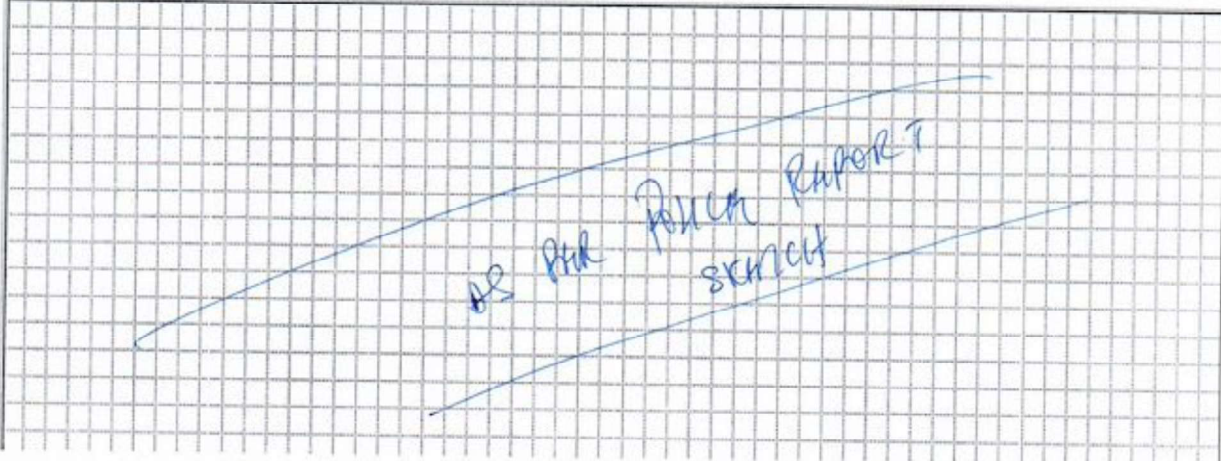 AS PER POLICE REPORT
SKETCH